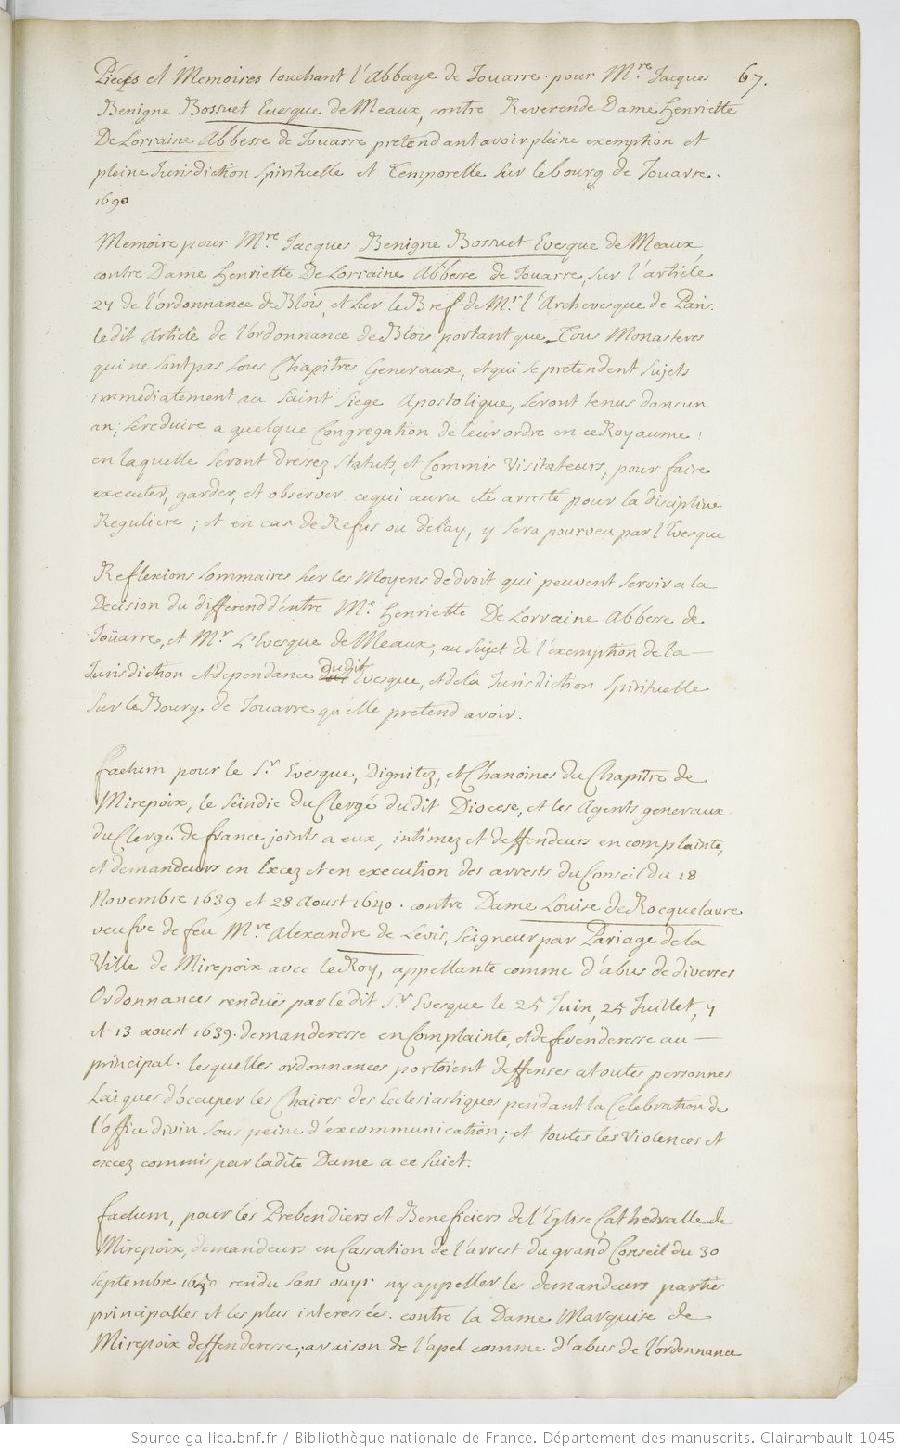 Pieces et Memoires touchant l'abbaye de Jouarre pour Mre Jacques 67.
Benigne Bossuet Evesque de Meaux, contre Reverende Dame Henriette
De Lorraine Abbesse de Jouarre pretendant avoir pleine exemption et
pleine Jurisdiction spirituelle et Temporelle sur le bourg de Jouarre.
1690
Memoire pour Mre Jacques Benigne Bossuet Evesque de Meaux
contre Dame Henriette De Lorraine Abbesse de Jouarre, sur l'article
27 de l'ordonnance de Blois, et sur le Bref de Mr l'Archevesque de Paris.
le dit article de l'ordonnance de Blois portant que Tous Monasteres
qui ne sont pas sous Chapitres Generaux, et qui se pretendent sujets
immediatement au saint siege Apostolique, seront tenus dans un
an, se reduire a quelque Congregation de leur ordre en ce Royaume:
en laquelle seront dressez statuts, et Commis Visitateurs, pour faire
executer, garder, et observer ce qui aura eté arresté pour la discipline
Reguliere; et en cas de Refus ou delay, y sera pourveu par l'Evesque
Reflexions sommaires sur les Moyens de droit qui peuvent servir a la
Decision du differend d'entre Me Henriette De Lorraine Abbesse de
Joüarre, et Mr L'Evesque de Meaux, au sujet de l'exemption de la
Jurisdiction et dependance dudit Evesque, et de la Jurisdiction spirituelle
sur le Bourg de Jouarre qu'elle pretend avoir.
factum pour le Sr Evesque, Dignitez, et Chanoines du Chapitre de
Mirepoix, le Seindic du Clergé dudit Diocese, et les Agents generaux
du Clergé de france joints a eux, intimez et deffendeurs en complainte,
et demandeurs en Excez et en execution des arrests du Conseil du 18
Novembre 1639 et 28 Aoust 1640. contre Dame Louise de Rocquelaure
veufve de feu Mre Alexandre de Levis, Seigneur par Pariage de la
Ville de Mirepoix avec le Roy, appellante comme d'abus de diverses
Ordonnances renduës par le dit Sr Evesque le 25 Juin, 25 Juillet, 7
et 13 aoust 1639. demanderesse en Complainte, et deffenderesse au
principal. lesquelles ordonnances portoient deffenses a toutes personnes
Laïques d'occuper les Chaires des Ecclesiastiques pendant la Celebration de
l'office divin sous peine d'excommunication; et toutes les Violences et
excez commis par ladite Dame a ce sujet.
factum, pour les Prebendiers et Beneficiers de l'Eglise Cathedralle de
Mirepoix, demandeurs en Cassation de l'arrest du grand Conseil du 30
septembre rendu sans ouyr ny appeller les demandeurs parties
principalles et les plus interessées. contre la Dame Marquise de
Mirepoix deffenderesse, a raison de l'apel comme d'abus de l'ordonnance